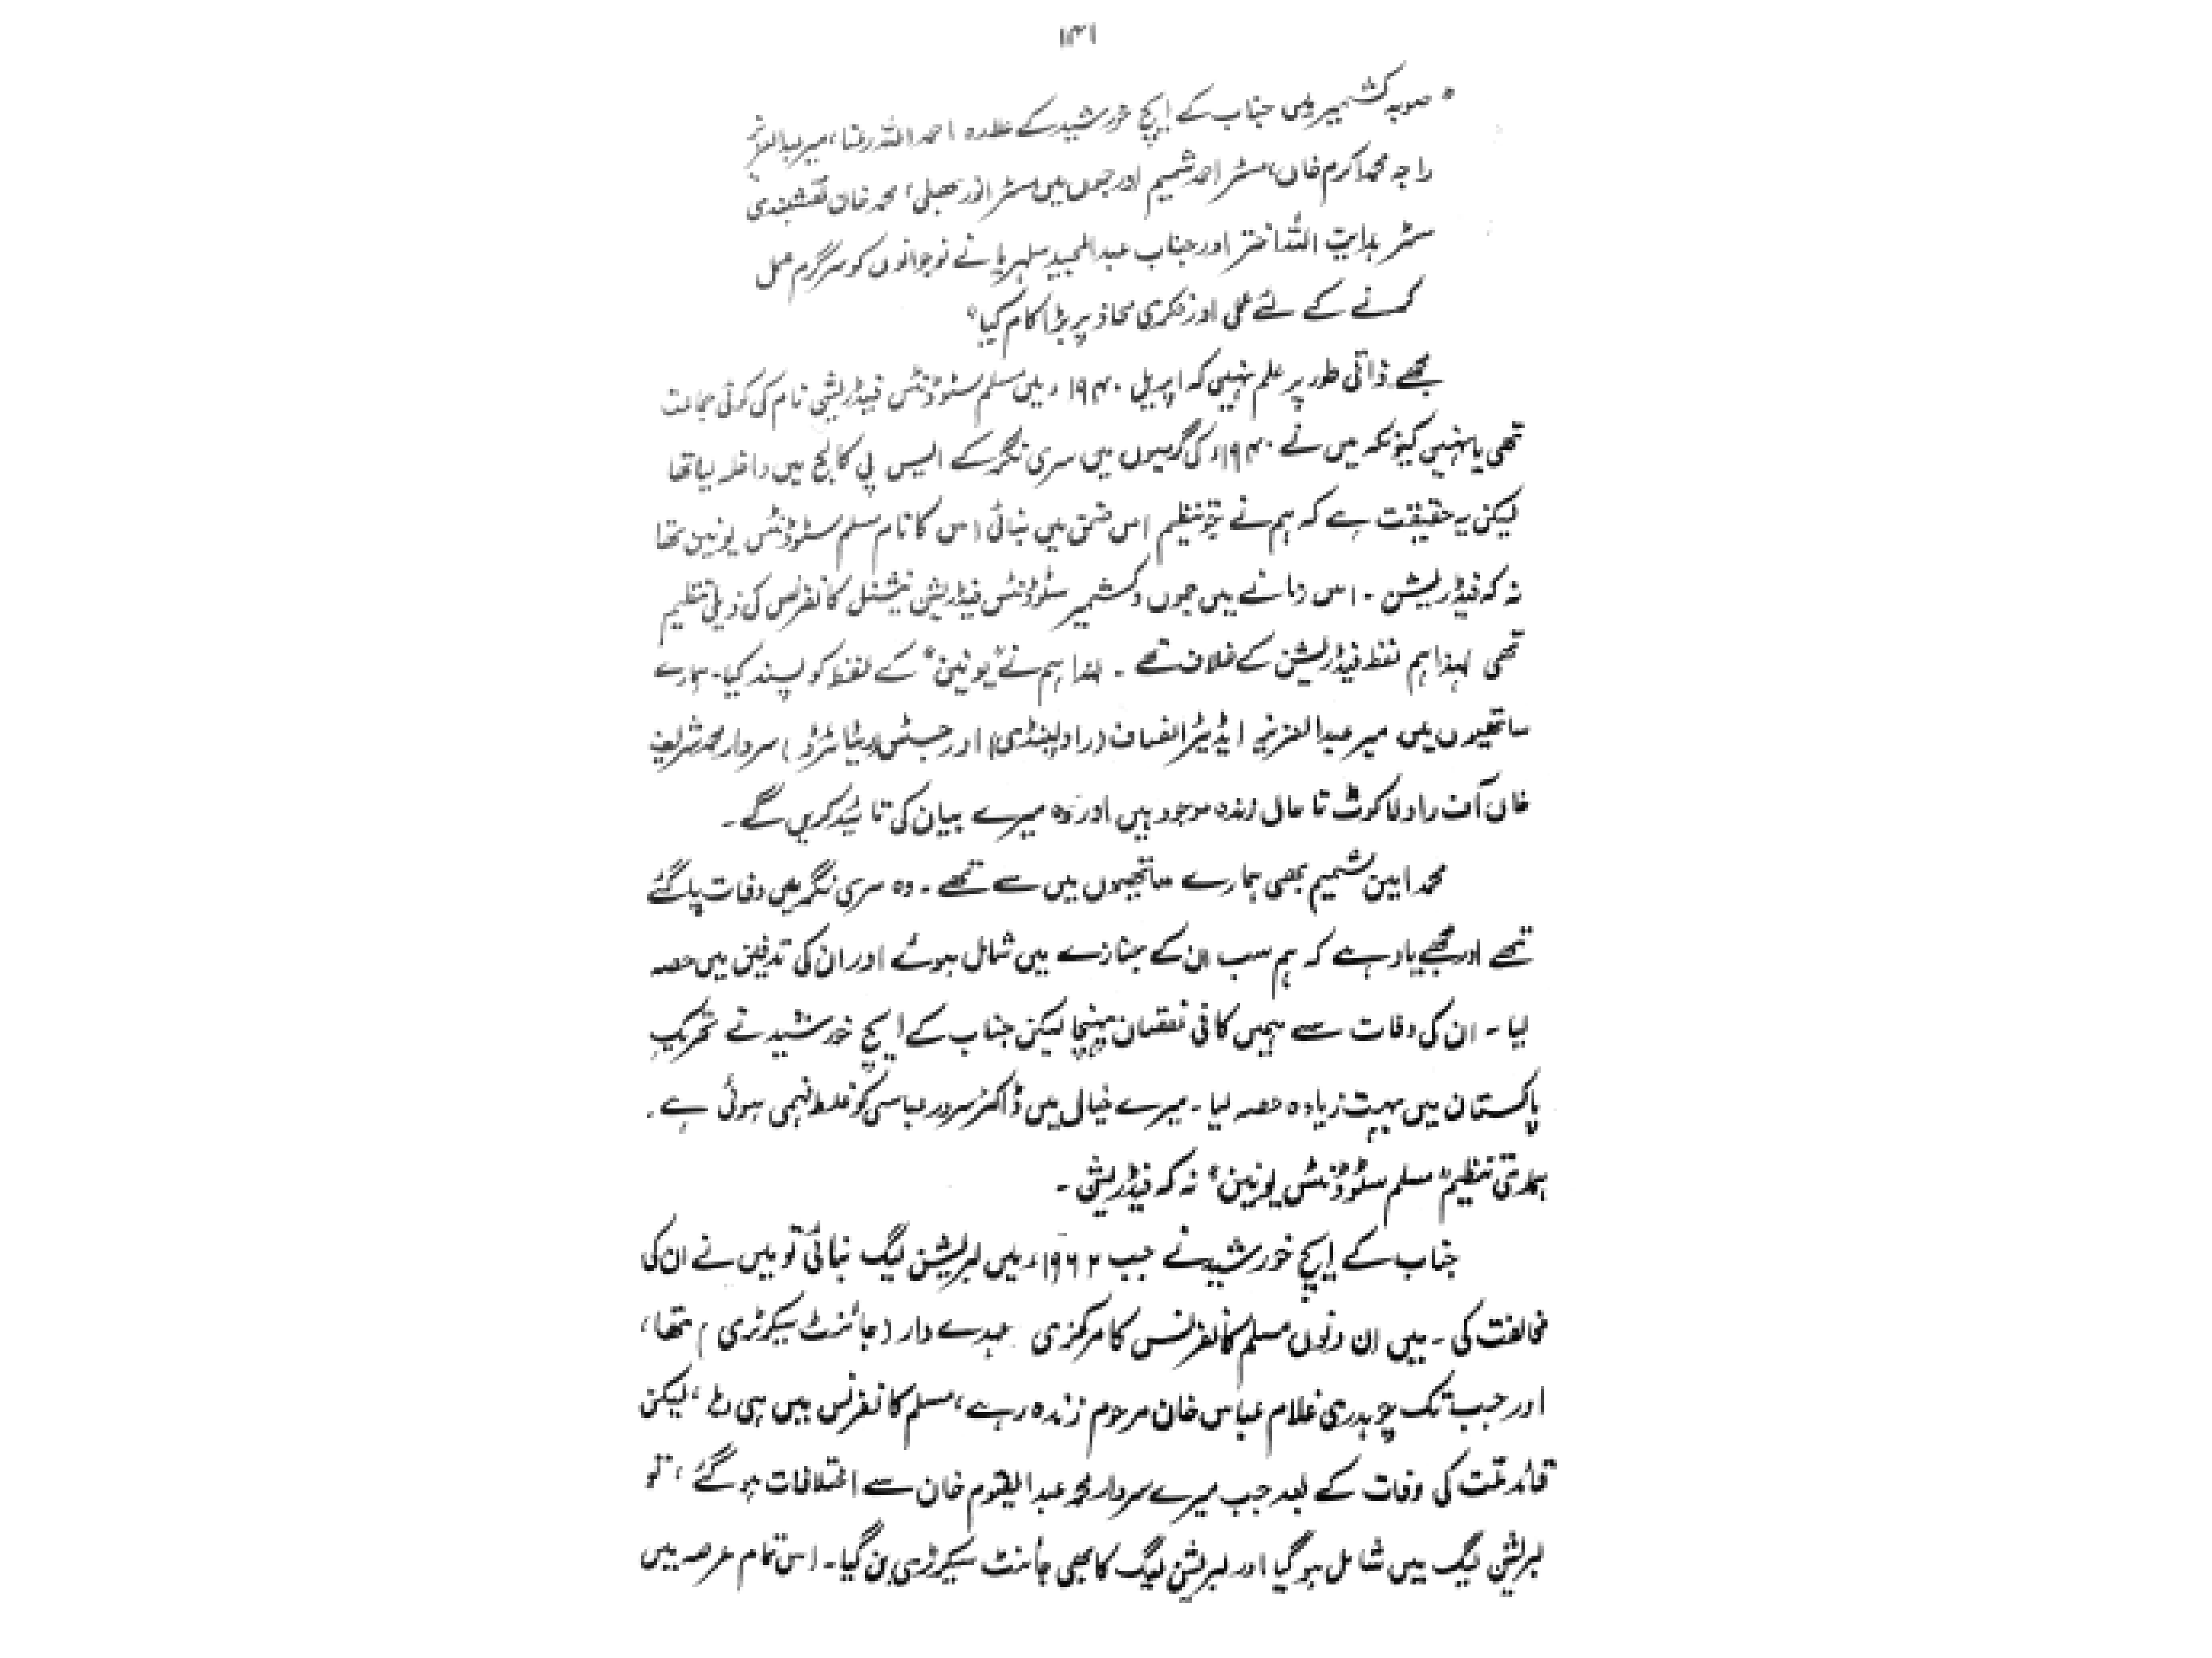 ۱۴۱
"صوبہ کشمیر میں جناب کے ایچ خورشید کے علاوہ احمد اللہ رعنا، میر عبدالعزیز
راجہ محمد اکرم خاں، مسٹر احمد شمیم اور جموں میں مسٹر انور سہیلی، محمد خان نقشبندی
مسٹر ہدایت اللہ اختر اور جناب عبدالمجید سلہریا نے نوجوانوں کو سرگرم عمل
کرنے کے لئے عملی اور فکری محاذ پر بڑا کام کیا"
مجھے ذاتی طور پر علم نہیں کہ اپریل ۱۹۴۰ء میں مسلم سٹوڈنٹس فیڈریشن نام کی کوئی جماعت
تھی یا نہیں کیونکہ میں نے ۱۹۴۰ء کی گرمیوں میں سری نگر کے ایس پی کالج میں داخلہ لیا تھا
لیکن یہ حقیقت ہے کہ ہم نے جو تنظیم اس ضمن میں بنائی اس کا نام مسلم سٹوڈنٹس یونین تھا
نہ کہ فیڈریشن ۔ اس زمانے میں جموں و کشمیر سٹوڈنٹس فیڈریشن نیشنل کانفرنس کی ذیلی تنظیم
تھی لہذا ہم لفظ فیڈریشن کے خلاف تھے ۔ لہذا ہم نے "یونین" کے لفظ کو پسند کیا۔ ہمارے
ساتھیوں میں میر عبدالعزیز ایڈیٹر انصاف (راولپنڈی) اور جسٹس (ریٹائرڈ) سردار محمد شریف
خاں آف راولاکوٹ تا حال زندہ موجود ہیں اور وہ میرے بیان کی تائید کریں گے ۔
محمد امین شمیم بھی ہمارے ساتھیوں میں سے تھے ۔ وہ سری نگر میں وفات پا گئے
تھے اور مجھے یاد ہے کہ ہم سب ان کے جنازے میں شامل ہوئے اور ان کی تدفین میں حصہ
لیا ۔ ان کی وفات سے ہمیں کافی نقصان پہنچا لیکن جناب کے ایچ خورشید نے تحریک
پاکستان میں بہت زیادہ حصہ لیا ۔ میرے خیال میں ڈاکٹر سرور عباسی کو غلط فہمی ہوئی ہے ۔
ہماری تنظیم "مسلم سٹوڈنٹس یونین" نہ کہ فیڈریشن ۔
جناب کے ایچ خورشید نے جب ۱۹۶۲ء میں لبریشن لیگ بنائی تو میں نے ان کی
مخالفت کی ۔ میں ان دنوں مسلم کانفرنس کا مرکزی عہدے دار (جائنٹ سیکرٹری) تھا،
اور جب تک چوہدری غلام عباس خان مرحوم زندہ رہے، مسلم کانفرنس میں ہی رہا، لیکن
قائد ملت کی وفات کے بعد جب میرے سردار محمد عبدالقیوم خان سے اختلافات ہو گئے، تو
لبریشن لیگ میں شامل ہو گیا اور لبریشن لیگ کا بھی جائنٹ سیکرٹری بن گیا ۔ اس تمام عرصہ میں